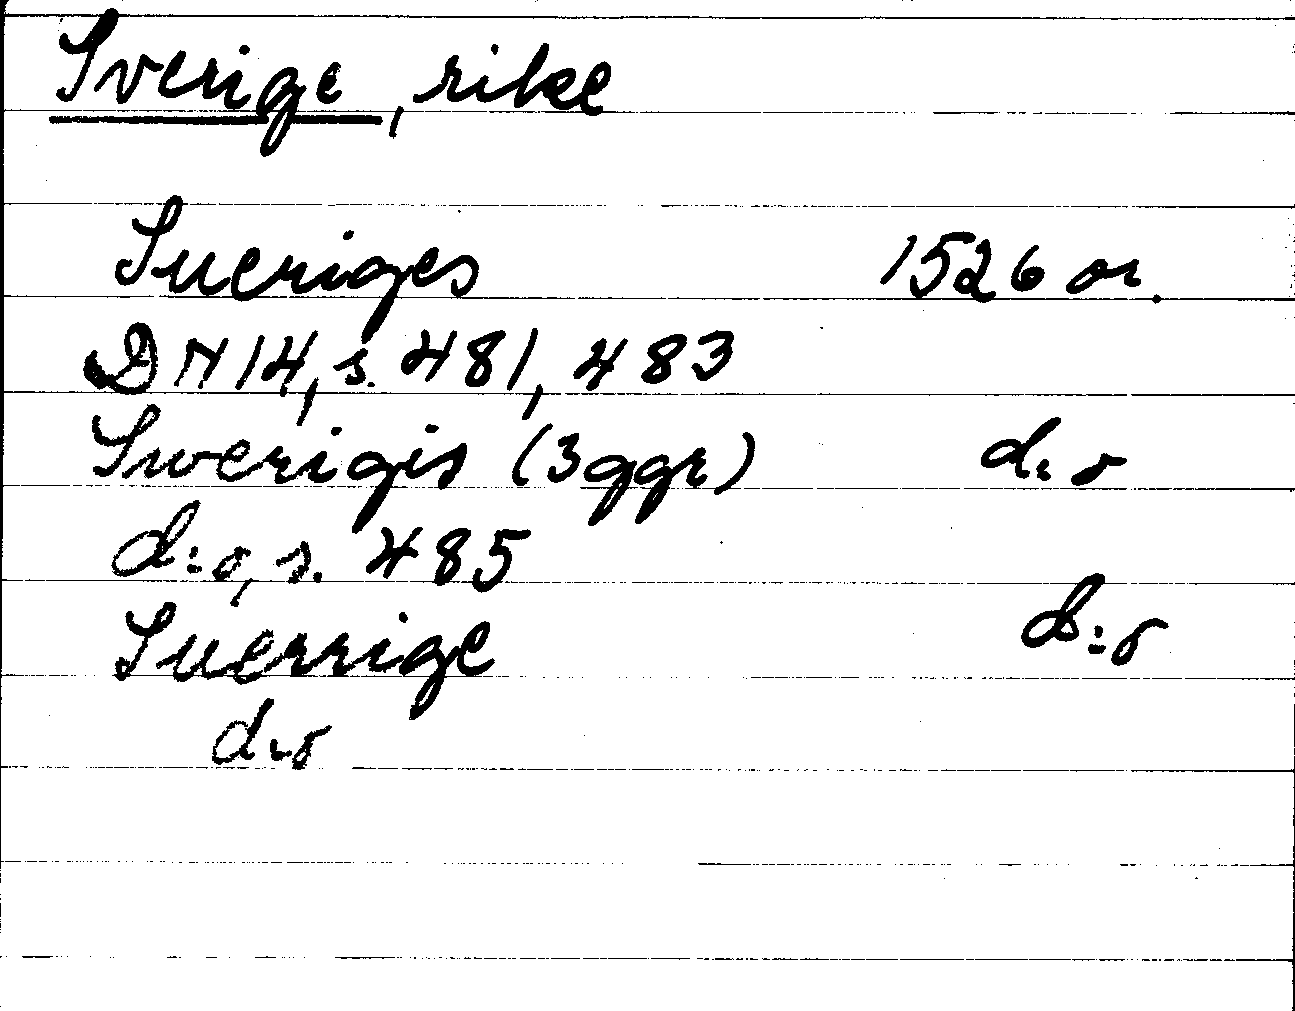 Sverige, rike
Sueriges 1526 or.
DN 14, s. 481, 483
Swerigis (3 ggr) d:o
d:o, s. 485
Suerrige d:o
d:o